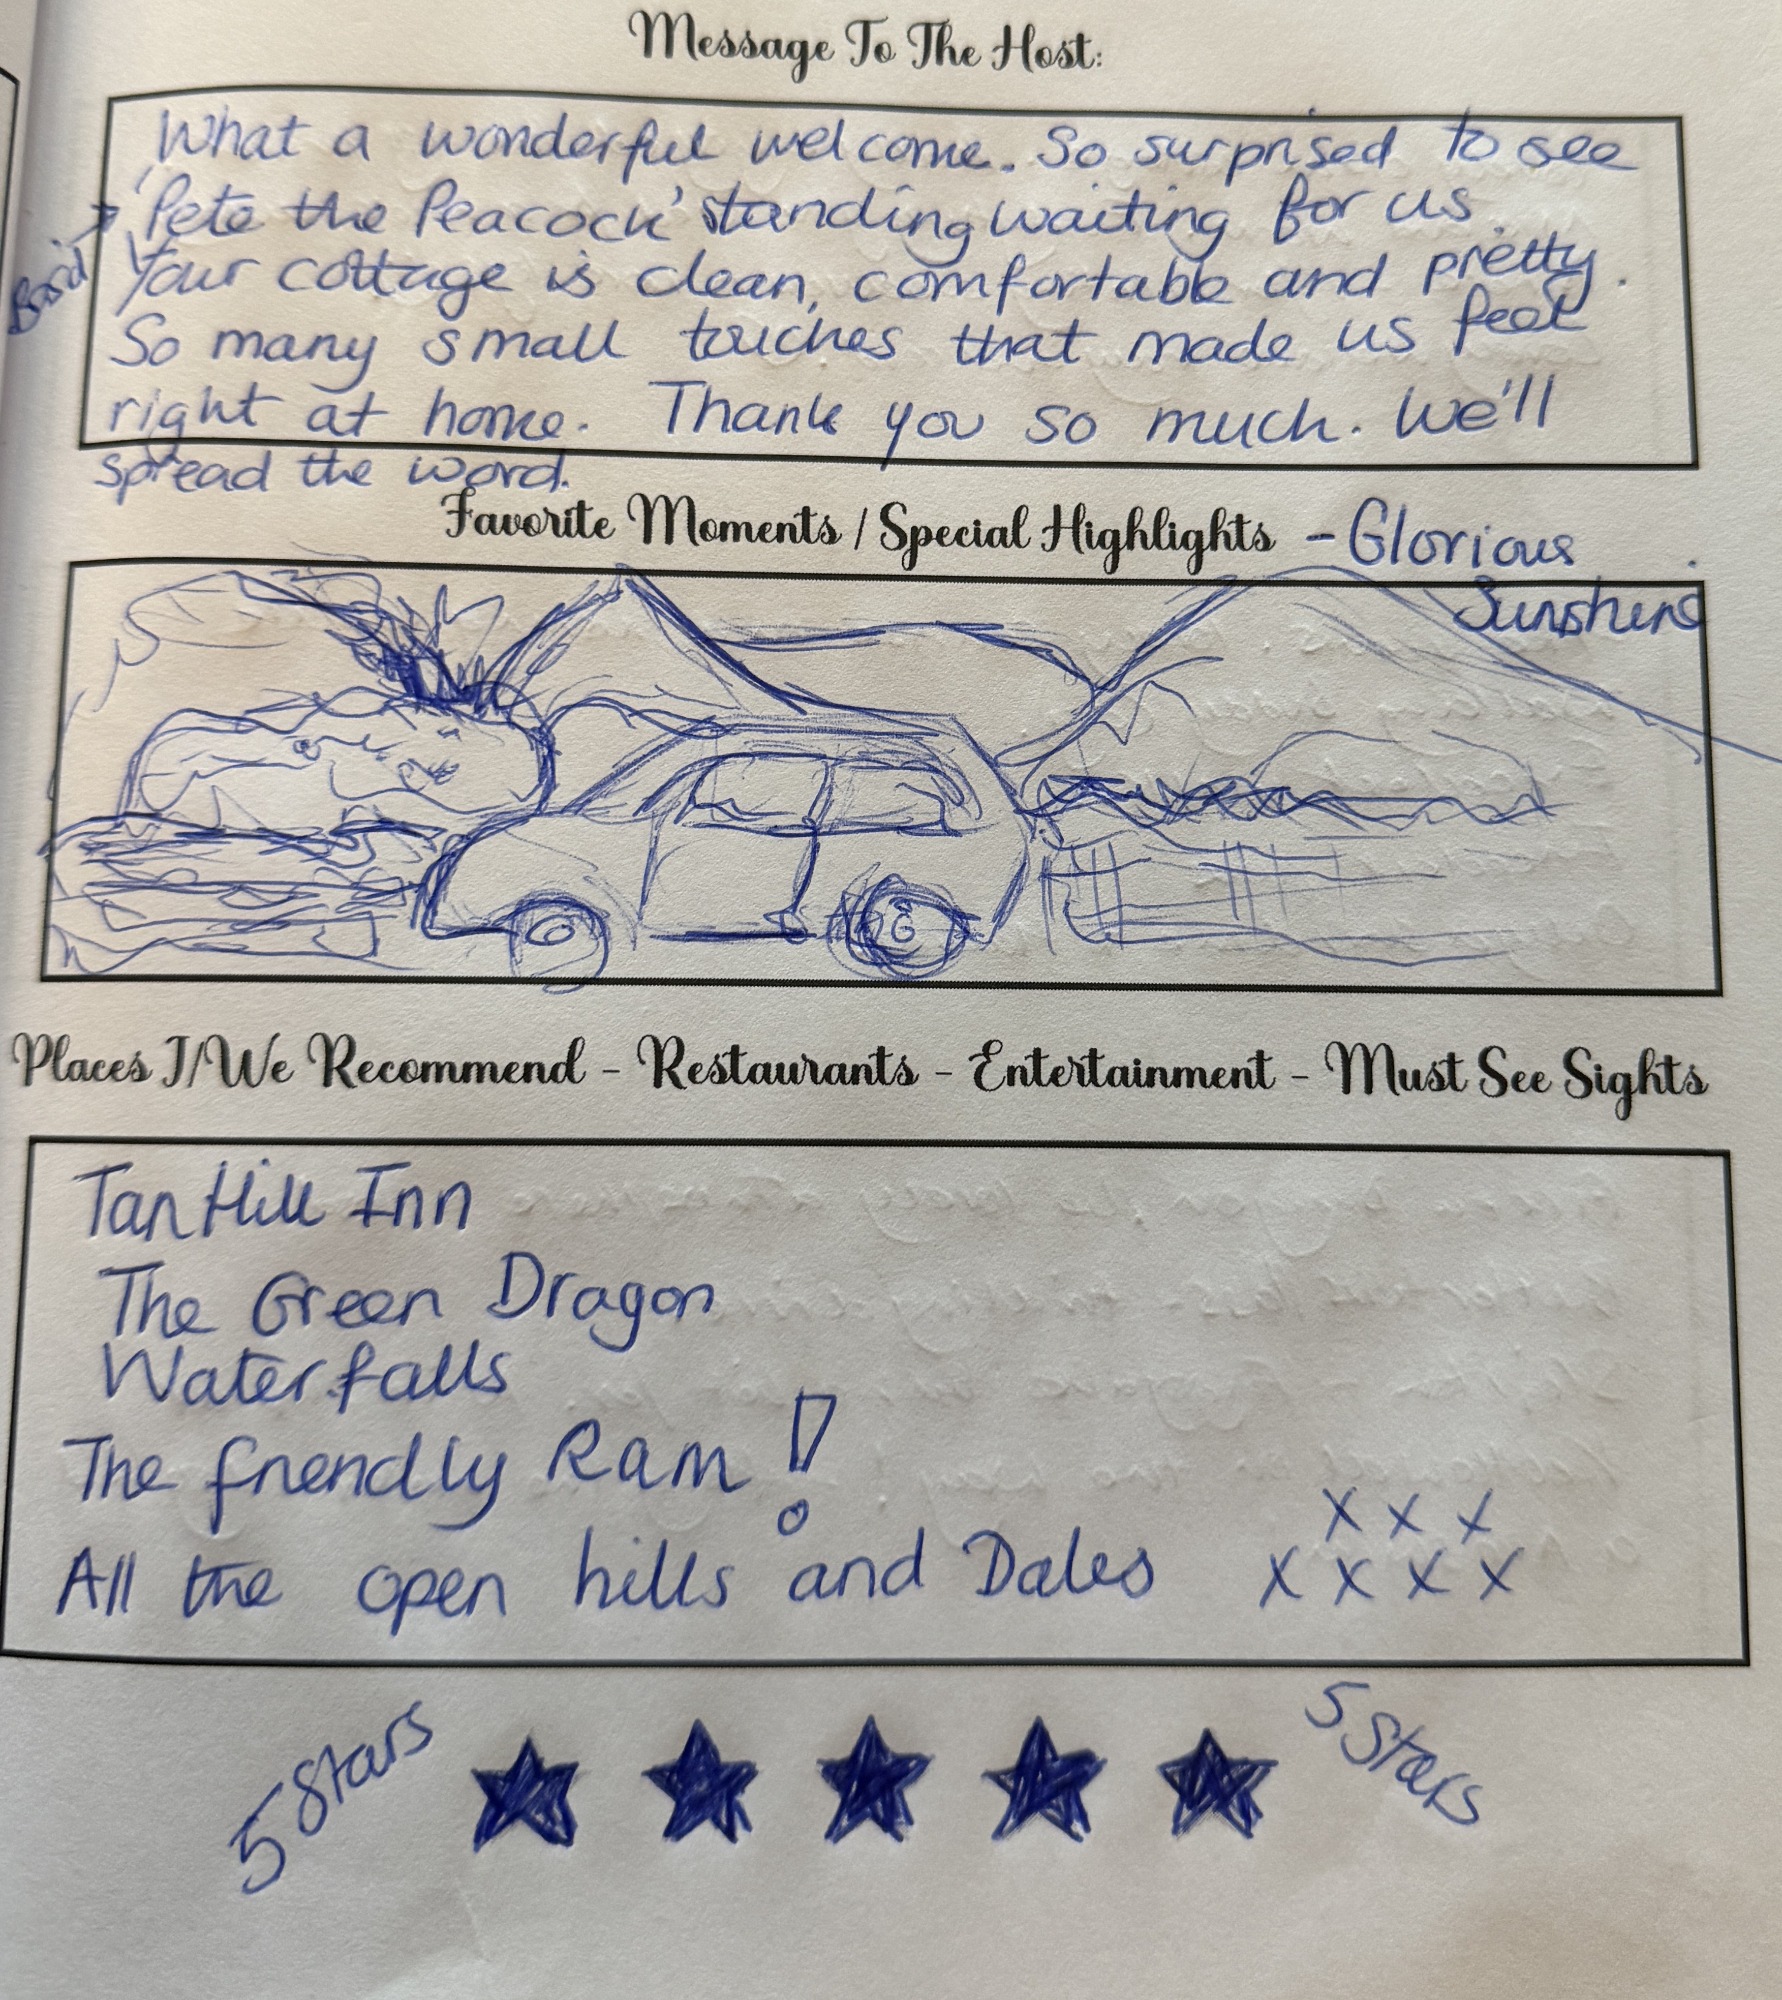 Message To The Host:
What a wonderful welcome. So surprised to see
'Pete the Peacock' standing waiting for us
Your cottage is clean, comfortable and pretty.
So many small touches that made us feel
right at home. Thank you so much. We'll
spread the word.
Favorite Moments / Special Highlights - Glorious
Sunshine
Places I/We Recommend - Restaurants - Entertainment - Must See Sights
Tan Hill Inn
The Green Dragon
Waterfalls
The friendly Ram!
All the open hills and Dales
x x x
x x x x
5 Stars
5 Stars